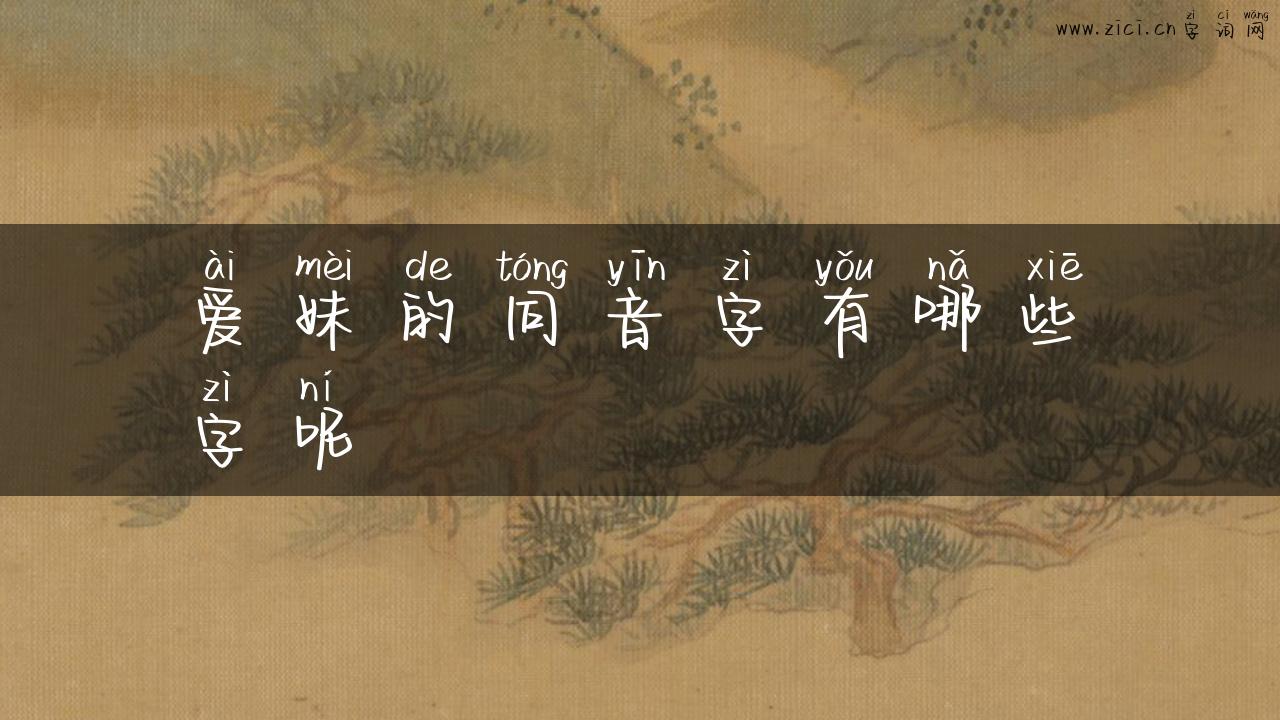 zì cí wǎng
www.zici.cn 字词网
ài mèi de tóng yīn zì yǒu nǎ xiē
爱妹的同音字有哪些
zì ní
字呢